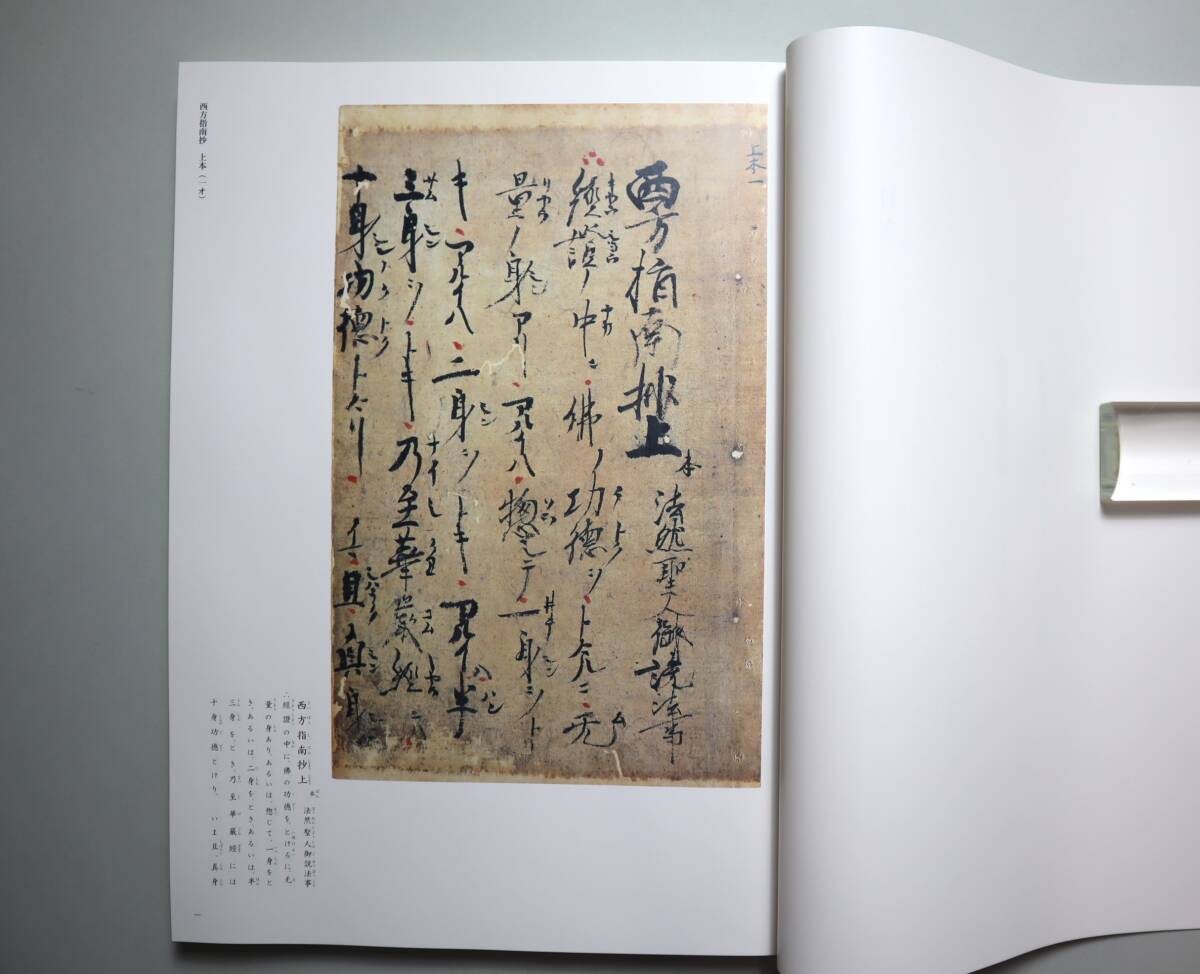 上本一
西方指南抄上本 法然聖人御説法事
經證ノ中ニ佛ノ功德ヲトケルニ无
量ノ身アリアルイハ惣シテ一身ヲト
キアルイハ二身ヲトキアルイハ
三身ヲトキ乃至華嚴經ニハ
十身功德トケリイマ且真身
西方指南抄上 本 法然聖人御説法事
∴經證の中に、佛の功德を、とけるに、无
量の身あり、あるいは、惣じて、一身をと
き、あるいは、二身を、とき、あるいは、
三身を、とき、乃至華嚴經には
十身功德とけり、いま且、真身
西方指南抄 上本（一オ）
一